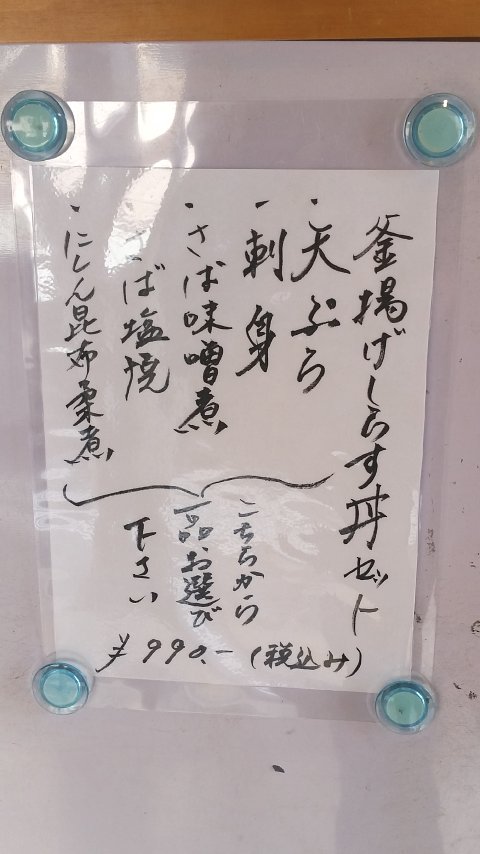 釜揚げしらす丼セット
・天ぷら
・刺身
・さば味噌煮
・さば塩焼
・にしん昆布柔煮
こちらから
一品お選び
下さい
¥990.-(税込み)